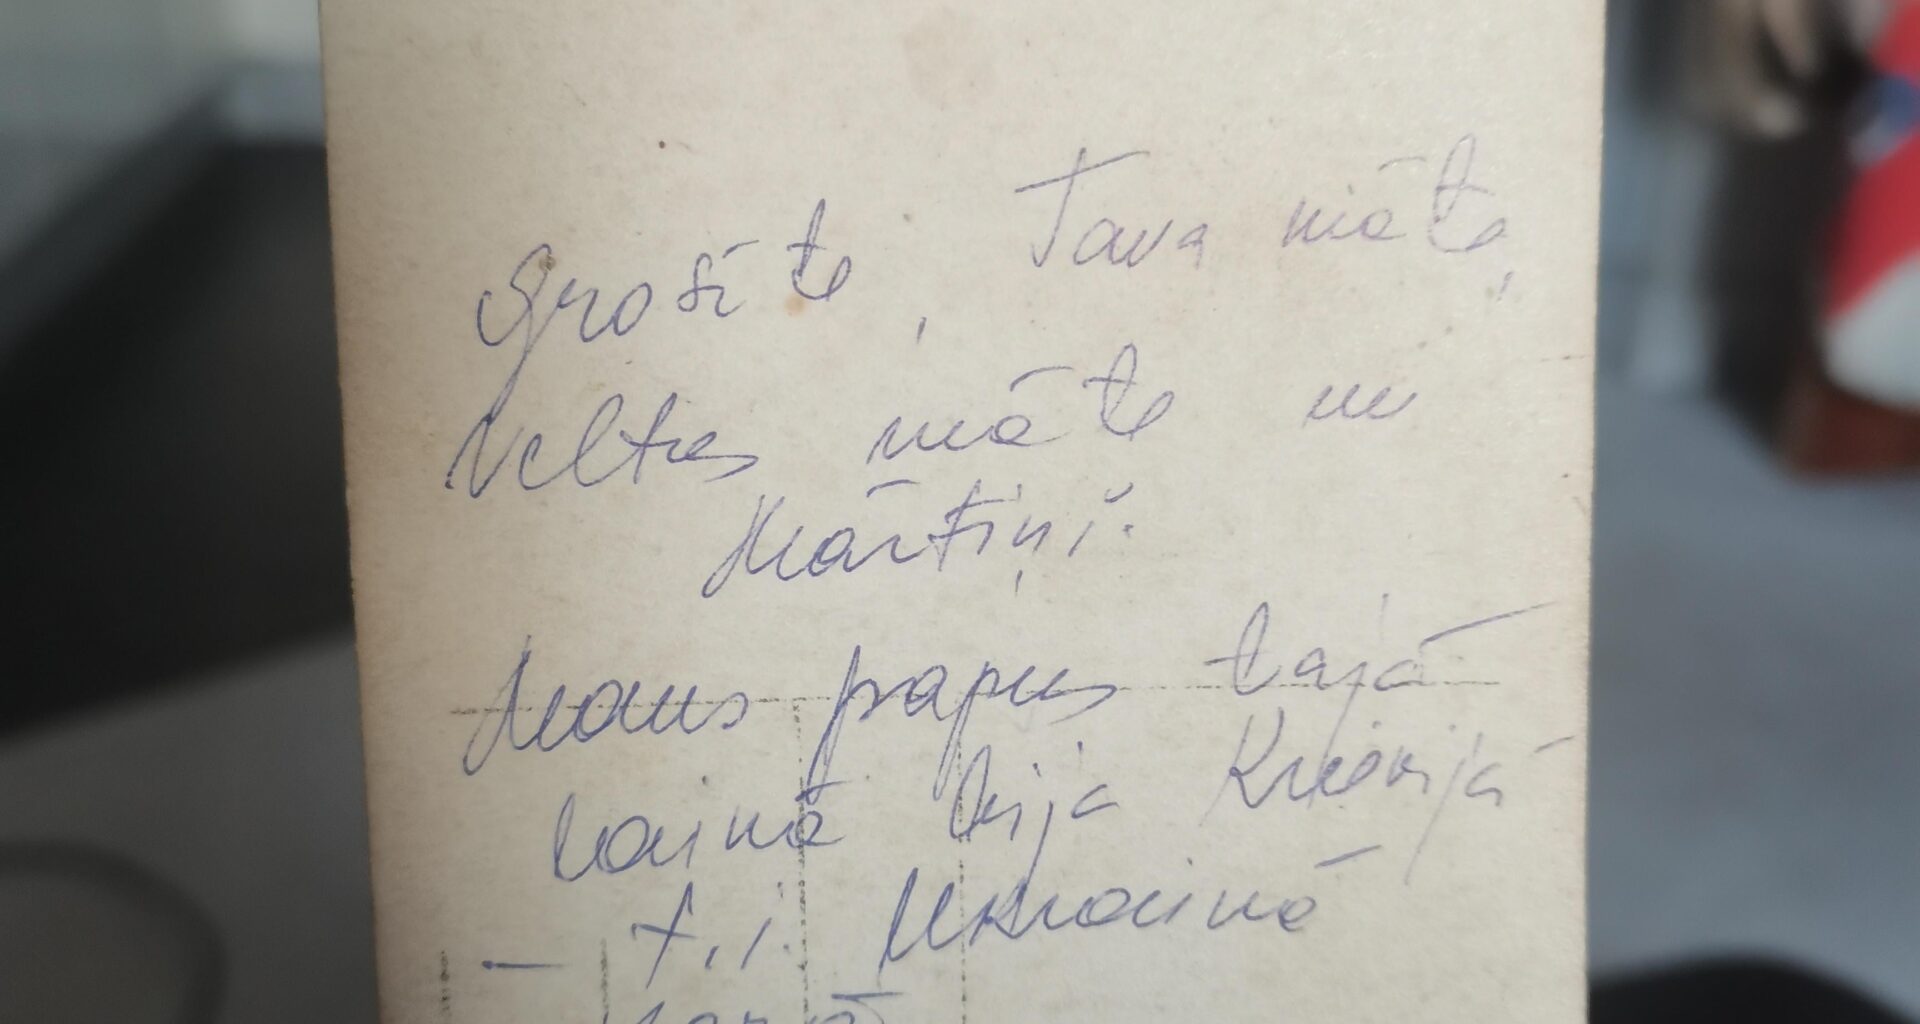 Grosīte, Tava māte,
Veltas māte un
Mārtiņš.
Mans papus tajā
laikā bija Krievijā
- t.i. Ukrainā
karā